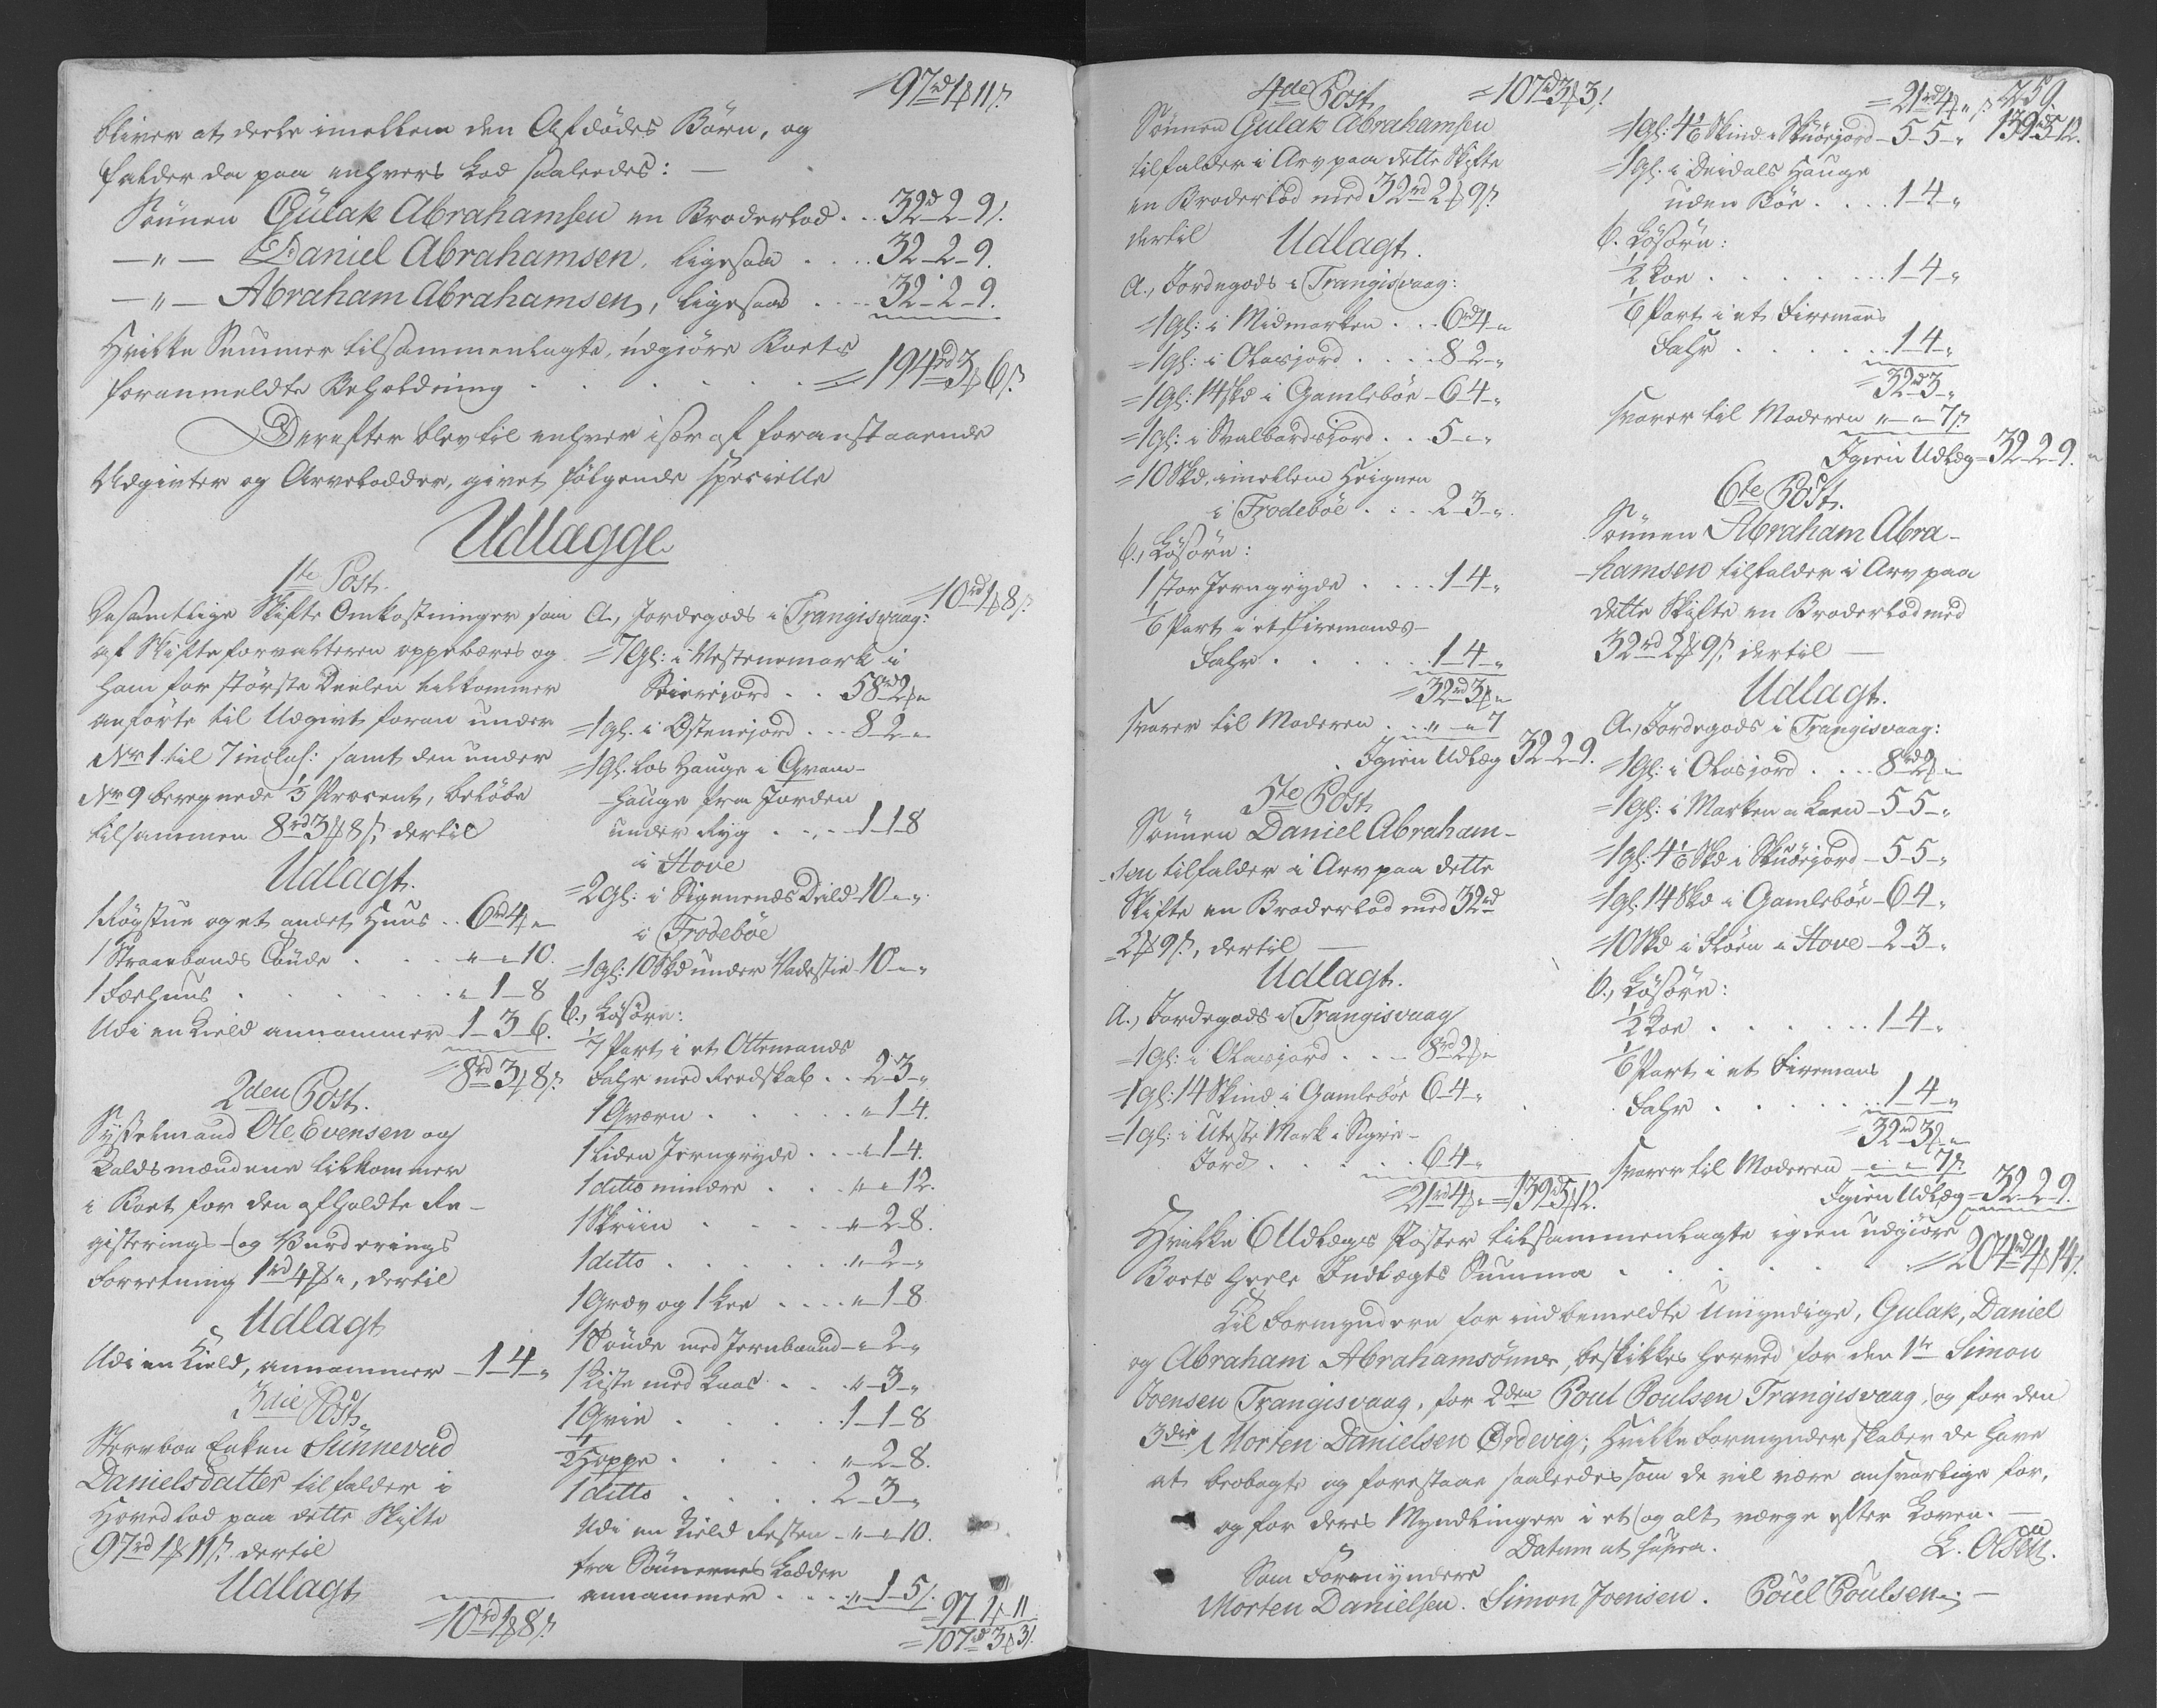 = 97rd 1ß 11s.
bliver at deele imellem den Afdødes Børn, og
falder da paa enhvers Lod saaledes: —
Sønnen Gulak Abrahamsen en Broderlod . . 32rd-2-9s.
— " — Daniel Abrahamsen, ligesaa . . . . 32-2-9.
— " — Abraham Abrahamsen, ligesaa . . . . 32-2-9.
Hvilke Summer tilsammenlagte, udgiøre Boets
foranmeldte Beholdning . . . . . = 194rd 3ß 6s.
Derefter blev til enhver især af foranstaaende
Udgivter og Arvelodder, givet følgende specielle
Udlægge
1te Post.
De samtlige Skifte Omkostninger som
af Skifteforvalteren oppebæres og
ham for største Deelen tilkommer
anførte til Udgivt foran under
Nr 1 til 7 inclus: samt den under
Nr 9 beregnede ⅓ Procent, beløbe
tilsammen 8rd 3ß 8s, dertil
Udlagt.
1 Røgstue og et andet Huus . . 6rd 4ß "
1 Straabands Tønde . . . " - " 10.
1 Færhuus . . . . . " 1-8
Udi en Kield annammer 1-3-6.
= 8rd 3ß 8s.
2den Post.
Sysselmand Ole Evensen og
Valdsmændene tilkommer
i Boet for den afholdte Re-
gisterings- og Vurderings
Forretning 1rd 4ß ", dertil
Udlagt
Udi en Kield, annammer - 1-4-"
3die Post.
Stervboe Enken Sunnevaa
Danielsdatter tilfalder i
Hovedlod paa dette Skifte
97rd 1ß 11s. dertil
Udlagt
= 10rd 1ß 8s.
= 10rd 1ß 8s.
A., Jordegods i Trangisvaag:
= 7 Gl: i Vestenemark i
58rd 2ß "
= 1 gl: i Østenijord . . . 8-2-"
= 1 gl: los Hauge i Qvam-
hauge fra Jorden
under Ryg . . . . 1-1-8
i Hove
= 2 Gl: i Sigmunds Deild 10-"-"
i Trodebøe
= 1 gl: 10 Skd under Vadestie 10-"-"
b., Løsøre:
1/7 Part i et Ottemands
Fahr med Reedskab . . 2-3-"
1 Qværn . . . . . " 1-4.
1 liden Jerngryde . . . " 1-4.
1 ditto mindre . . " " 12.
1 Skriin . . . . " 2-8.
1 ditto . . . . . " 2-"
1 Græv og 1 Lee . . . . " 1-8
1 Tønde med Jernbaand - " 2-"
1 Kiste med Laas . . . " 3-"
1 Qvie . . . . . 1-1-8
½ Hoppe . . . . . " 2-8.
1 ditto . . . . . 2-3-"
Udi en Kield Resten - " - " 10.
fra Sønnernes Lodder
annammer . . . . " 1-5s.
= 97 1ß 11
= 107rd 3ß 3s.
4de Post = 107rd 3ß 3s.
Sønnen Gulak Abrahamsen
tilfalder i Arv paa dette Skifte
en Broderlod med 32rd 2ß 9s.
dertil Udlagt.
A., Jordegods i Trangisvaag:
= 1 gl: i Midmarken . . . 6rd 4-"
= 1 gl: i Olasjord . . . . 8-2-"
= 1 Gl: 14 Skd i Gamlebøe - 6-4-"
= 1 gl: i Svalbardsjord . . 5-"-"
= 10 Skd, imellem Heignen
i Trodebøe . . . 2-3-"
b., Løsøre:
1 stor Jerngryde . . . . 1-4-"
1/6 Part i et Firemands-
Fahr . . . . . . 1-4-"
= 32rd 3ß "
svarer til Moderen . . . " - " 7
Igien Udlæg 32-2-9.
5te Post
Sønnen Daniel Abraham-
sen tilfalder i Arv paa dette
Skifte en Broderlod med 32rd
2ß 9s, dertil —
Udlagt.
A., Jordegods i Trangisvaag
= 1 Gl: i Olasjord . . . 8rd 2ß "
= 1 gl: 14 Skind i Gamlebøe 6-4-"
= 1 gl: i Uteste Mark i Sigrie-
Jord . . . . . . 6-4-"
= 21rd 4ß " = 139rd 5ß 12.
259
= 21rd 4ß " s
= 1 gl: 4⅙ Skind i Skuorjord - 5-5-" 139rd 5-12.
= 1 gl: i Deidals Hauge
uden Bøe . . . . 1-4-"
b. Løsøre:
½ Koe . . . . . . . 1-4-"
1/6 Part i et Firemans
Fahr . . . . . . 1-4-"
= 32rd 3-"
svarer til Moderen " - " 7s.
Igien Udlæg = 32-2-9.
6te Post.
Sønnen Abraham Abra-
hamsen tilfalder i Arv paa
dette Skifte en Broderlod med
32rd 2ß 9s, dertil —
Udlagt.
A., Jordegods i Trangisvaag:
= 1 Gl: i Olasjord . . . 8rd 2ß "
= 1 gl: i Marken a Laen - 5-5-"
= 1 gl: 4⅙ Skd i Skuorjord - 5-5-"
= 1 gl: 14 Skd i Gamlebøe - 6-4-"
= 10 Skd i Hove - 2-3-"
b., Løsøre:
½ Koe . . . . . . . 1-4-"
1/6 Part i et Firemans
Fahr . . . . . . 1-4-"
= 32rd 3ß "
svarer til Moderen - " - " 7s.
Igien Udlæg = 32-2-9.
Hvilke 6 Udlægs Poster tilsammenlagte igien udgiøre
Boets heele Indlægts Summa . . . . . = 204rd 4ß 14s.
Til Formyndere for indbemeldte Umyndige, Gulak, Daniel
og Abraham Abrahamsønner, beskikkes herved for den 1te Simon
Joensen Trangisvaag, for 2den Poul Poulsen Trangisvaag, og for den
3die Morten Danielsen Ørdevig; Hvilke Formynderskaber de have
at beobagte og forestaae saaledes som de vil være ansvarlige for,
og for deres Myndlinger i et og alt værge efter Loven. —
Datum ut supra.
Som Formyndere
Morten Danielsen. Simon Joensen. Poul Poulsen. —